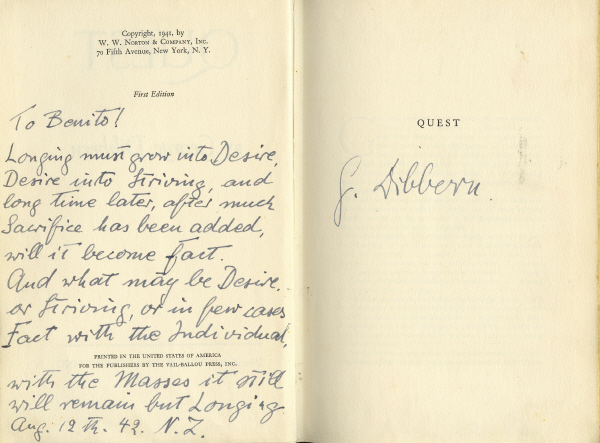 Copyright, 1941, by
W. W. Norton & Company, Inc.
70 Fifth Avenue, New York, N. Y.
First Edition
To Benito!
Longing must grow into Desire,
Desire into Striving, and
long time later, after much
Sacrifice has been added,
will it become Fact.
And what may be Desire,
or Striving, or in few cases
Fact with the Individual,
PRINTED IN THE UNITED STATES OF AMERICA
FOR THE PUBLISHERS BY THE VAIL-BALLOU PRESS, INC.
with the Masses it still
will remain but Longing
Aug. 12th. 42. N.Z.
QUEST
G. Dibbern.